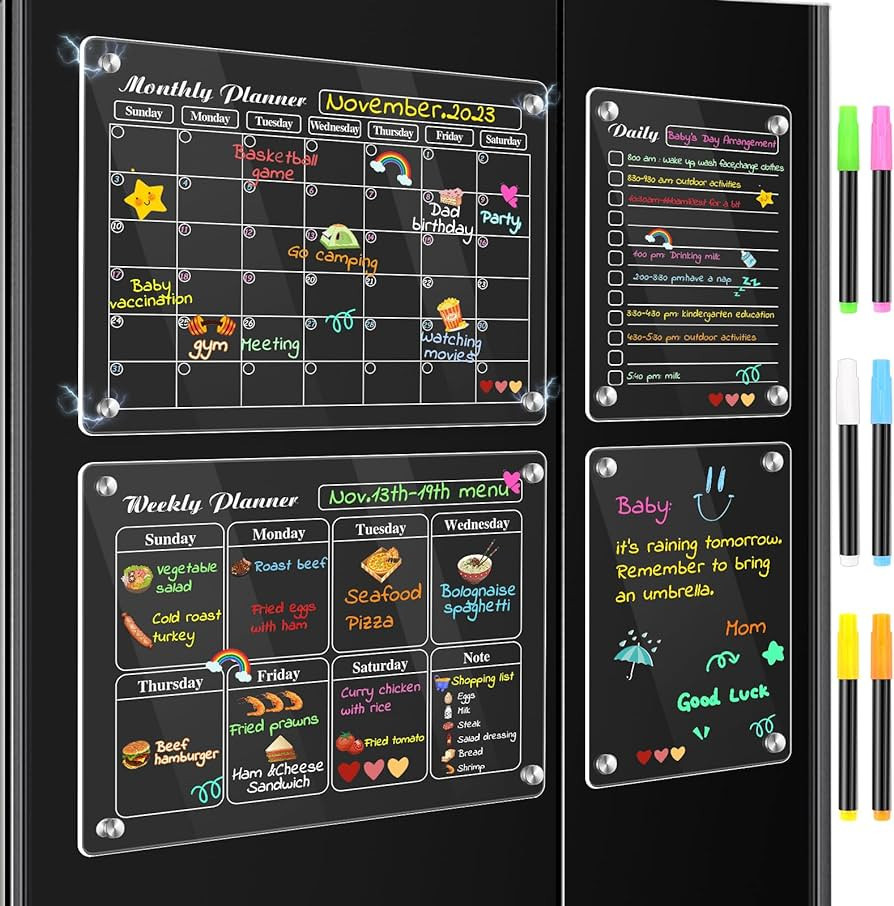 Monthly Planner
November.2023
Sunday Monday Tuesday Wednesday Thursday Friday Saturday
1 2
Basketball
game
3 4 5 6 7 8 9
Dad
birthday
Party
10 11 12 13 14 15 16
Go camping
17 18 19 20 21 22 23
Baby
vaccination
24 25 26 27 28 29 30
gym
Meeting
watching
movies
31
Daily
Baby's Day Arrangement
830-930 am outdoor activities
Rest for a bit
400 pm: Drinking milk
200-330 pm:have a nap
zzz
330-430 pm: kindergarten education
430-530 pm: outdoor activities
540 pm: milk
Weekly Planner
Nov.13th-19th menu
Sunday
Vegetable
salad
Cold roast
turkey
Monday
Roast beef
Fried eggs
with ham
Tuesday
Seafood
Pizza
Wednesday
Bolognaise
spaghetti
Thursday
Beef
hamburger
Friday
Fried prawns
Ham &Cheese
Sandwich
Saturday
Curry chicken
with rice
Fried tomato
Note
Shopping list
Eggs
Milk
Steak
Salad dressing
Bread
Shrimp
Baby:
it's raining tomorrow.
Remember to bring
an umbrella.
Mom
Good Luck